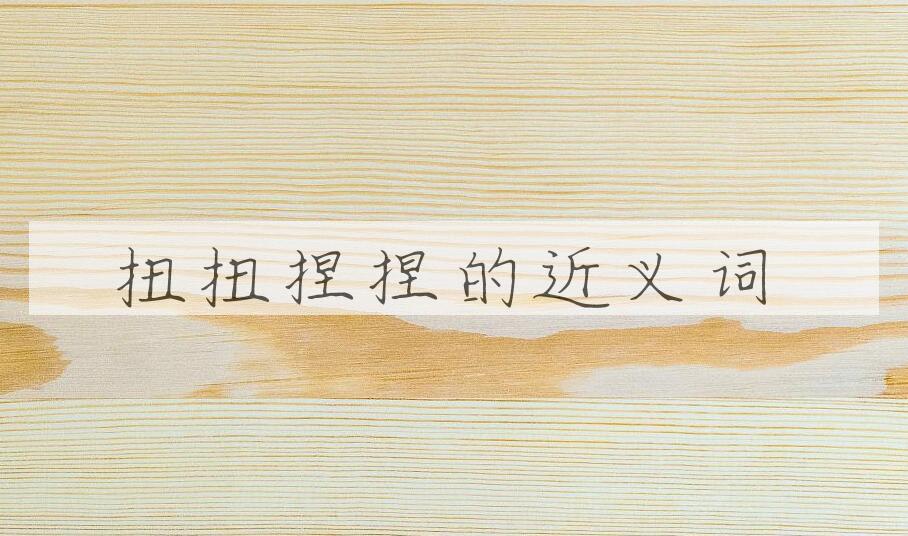 扭扭捏捏的近义词